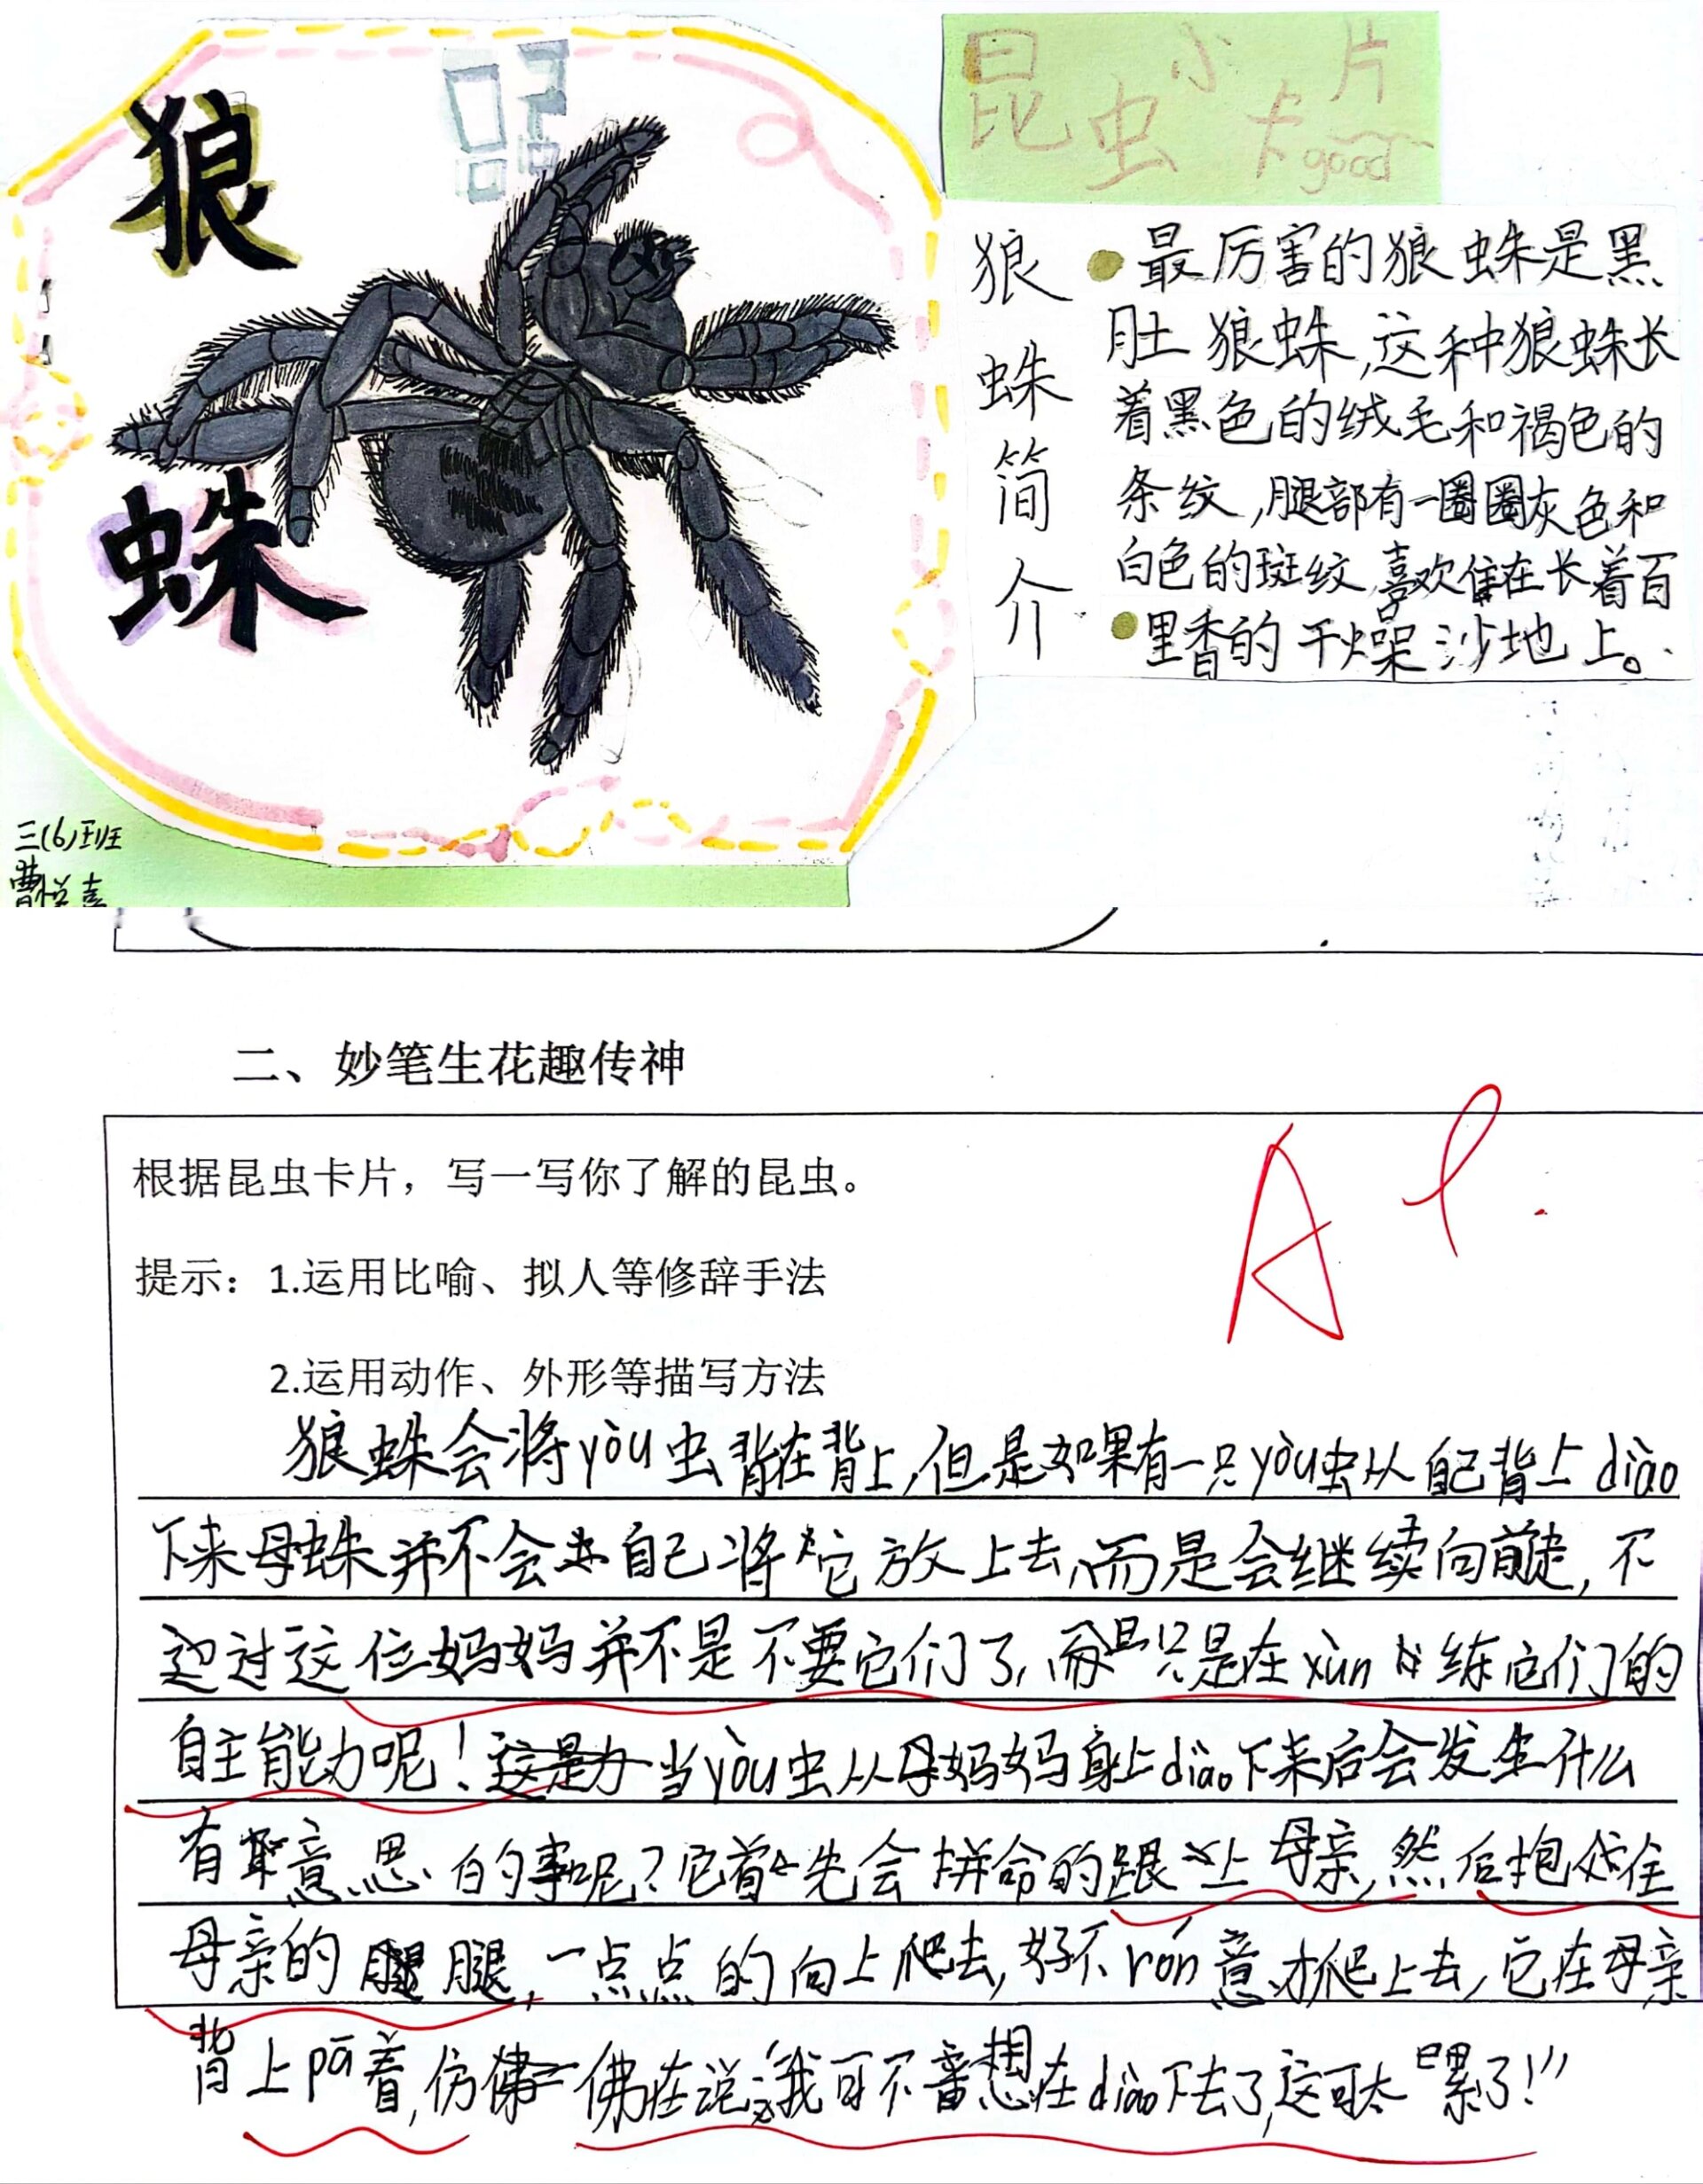 狼
蛛
昆虫小卡片
good
狼蛛简介
最厉害的狼蛛是黑
肚狼蛛,这种狼蛛长
着黑色的绒毛和褐色的
条纹,腿部有一圈圈灰色和
白色的斑纹,喜欢住在长着百
里香的干燥沙地上。
三(6)班
二、妙笔生花趣传神
根据昆虫卡片，写一写你了解的昆虫。
提示：1.运用比喻、拟人等修辞手法
2.运用动作、外形等描写方法
A
狼蛛会将yòu虫背在背上,但是如果有一只yòu虫从自己背上diào
下来母蛛并不会自己将它放上去,而是会继续向前走,不
过这位妈妈并不是不要它们了,而是只是在xùn练它们的
自主能力呢！当yòu虫从母妈妈身上diào下来后会发生什么
有意思的事呢?它首先会拼命的跟上母亲,然后抱住
母亲的腿,一点点的向上爬去,好不rón意才爬上去,它在母亲
背上pā着,仿佛在说:“我可不想在diào下去了,这可太累了!”